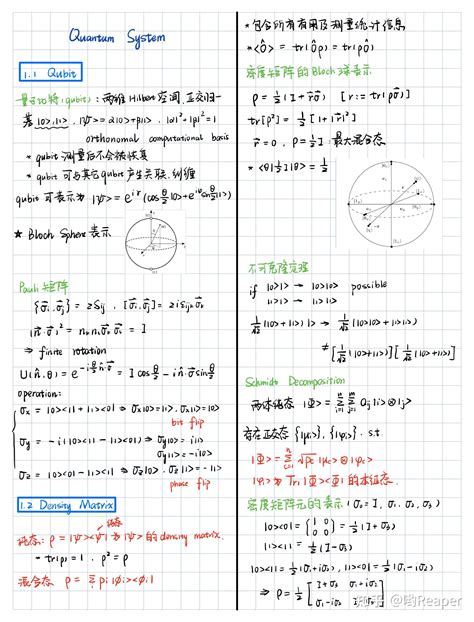 Quantum System
1.1 Qubit
量子比特(qubit): 两维Hilbert空间,正交归一
基|0>,|1>, |ψ>=α|0>+β|1>, |α|²+|β|²=1
orthonomal computational basis
* qubit 测量后不会被恢复
* qubit 可与其它qubit产生关联,纠缠
qubit 可表示为 |ψ>=e^{iγ}(cos θ/2 |0>+e^{iφ} sin θ/2 |1>)
★ Bloch Sphere 表示
Pauli 矩阵
{σi,σj}=2δij, [σi,σj]=2iεijkσk
(n·σ)²=nknkσkσk=I
⇒ finite rotation
U(n̂,θ)=e^{-iθ/2 n̂·σ}=I cos θ/2 - i n̂·σ sin θ/2
operation:
σx=|0><1|+|1><0| ⇒ σx|0>=|1>, σx|1>=|0>
bit flip
σy=-i(|0><1|-|1><0|) ⇒ σy|0>=i|1>
σy|1>=-i|0>
σz=|0><0|-|1><1| ⇒ σz|0>, σz|1>=-|1>
phase flip
1.2 Density Matrix
纯态: ρ=|ψ><ψ| 为 |ψ> 的 density matrix.
* tr(ρ)=1, ρ²=ρ
混合态 ρ=Σi pi|φi><φi|
* 包含所有有用及测量统计信息
* <Ô>=tr(Ôρ)=tr(ρÔ)
密度矩阵的Bloch球表示
ρ=½(I+rσ) [r:=tr(ρσ)]
tr[ρ²]=½[1+|r|²]
r=0, ρ=½I 最大混合态
不可克隆定理
if |0>|> → |0>|0> possible
|1>|> → |1>|1>
1/√2(|0>+|1>)|> → 1/√2(|0>|0>+|1>|1>)
≠[1/√2(|0>+|1>)][1/√2(|0>+|1>)]
Schmidt Decomposition
存在正交态 {|μi>},{|φi>}. s.t.
密度矩阵元的表示 (σ0=I, σ1, σ2, σ3)
|0><0|=(1 0 0 0)=½(I+σ3)
|1><1|=½(I-σ3)
|0><1|=½(σ1+iσ2), |1><0|=½(σ1-iσ2)
⇒ ρ=½[I+σ3 σ1+iσ2
σ1-iσ2 I-σ3]
知乎 @哟Reaper